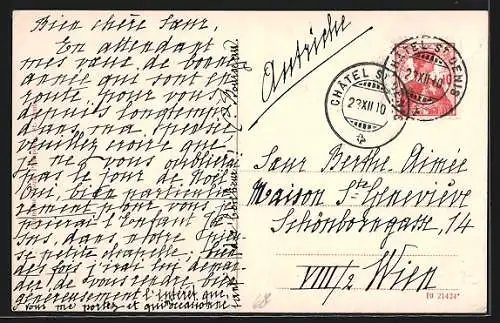 Bien chère Sœur,
En attendant
mes vœux de bonne
année qui sont en
route pour vous
depuis longtemps
dans ma
veuillez croire que
je ne vous oublierai
pas le jour de Noël
Oui, bien particulière-
rement pour vous,
prierai l'Enfant Jé-
sus, dans notre
se petite chapelle;
des fois j'irai lui deman-
der de vous rendre bien
généreusement l'intérêt que
vous me portez et
Autriche
CHÂTEL ST DENIS
23XII.10
CHÂTEL ST DENIS
23XII.10
Sœur Berthe-Aimée
Maison Ste Geneviève
Schönborngasse, 14
VIII/2 Wien
21424
68